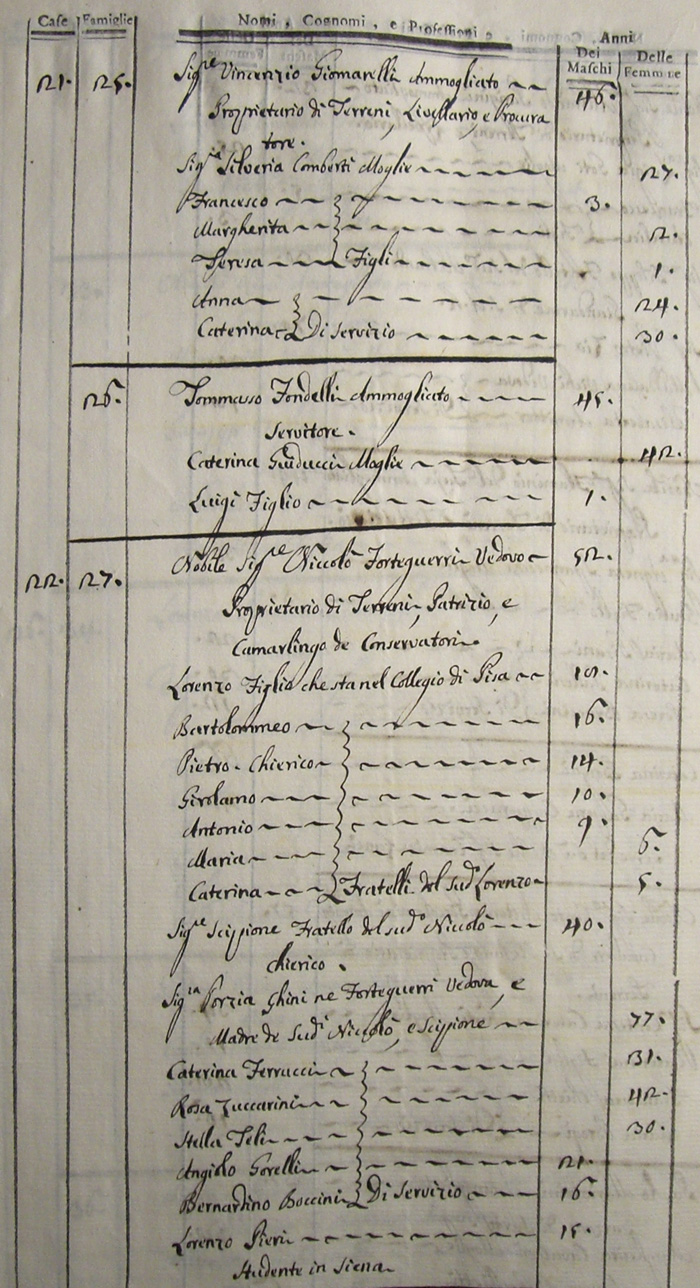 Case Famiglie Nomi, Cognomi, e Professioni Anni
Dei Maschi Delle Femmine
21. 25. Sig.re Vincenzio Giomarelli Ammogliato 46.
Proprietario di Terreni, Livellario, e Procura
tore.
Sig.ra Silveria Comberti Moglie 27.
Francesco 3.
Margherita 2.
Teresa Figli 1.
Anna 24.
Caterina Di Servizio 30.
26. Tommaso Fondelli Ammogliato 45.
Servitore.
Caterina Guiducci Moglie 42.
Luigi Figlio 7.
22. 27. Nobile Sig.re Niccolò Forteguerri Vedovo 52.
Proprietario di Terreni, Patrizio, e
Camarlingo de Conservatori.
Lorenzo Figlio che sta nel Collegio di Pisa
Bartolommeo 16.
Pietro. Chierico 14.
Girolamo 10.
Antonio 9.
Maria 6.
Caterina Fratelli del sud.o Lorenzo 5.
Sig.re Scipione Fratello del sud.o Niccolò 40.
Chierico.
Sig.ra Porzia Ghini ne Forteguerri Vedova, e
Madre de Sud.i Niccolò, e Scipione 77.
Caterina Ferrucci 31.
Rosa Zuccarini 42.
Stella Teli 30.
Angiolo Gorelli 21.
Bernardino Boccini Di Servizio 16.
Lorenzo Pieri 15.
Studente in Siena